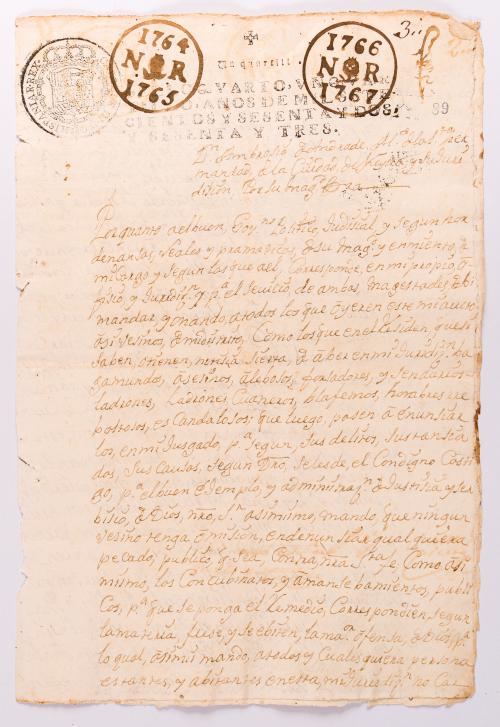 1764
N R
1765
1766
N R
1767
3
HISPANIAR REX
Un quartill
QVARTO, VN
AÑOS DE MIL
CIENTOS Y SESENTA Y DOS,
Y SESENTA Y TRES.
89
Dn. Ambrosio de Andrade, Alce. de la Sta. er
mandad, de la Ciudad de
dision, Por su magd. &a
Por quanto a el buen, Govno. Politico, Judicial, y segun hor
denansas, Reales y pramaticas, de su magd. y en
mi Cargo y segun los que a el, Corresponde, en mi propio, o
fisio, y Jurisn. y pa. el servisio de ambas, magestades, debi
mandar, y mando, a todos los que oyeren este mi auto
asi vesinos, de mi distrito, Como los que en el Residen, que si
saben, o tienen, notisia sierta, de aber en mi Jurisdisn. ba
gamundos, asesinos, alebosos, forsadores, y
ladrones, Cuatreros, blafemos, hombres
escandalosos; que luego, pasen a denunsiar
los, en mi Jusgado, pa. segun, sus delitos, sustansia
dos, sus Causas, segun Dro, se les de, el Condigno Casti
go, pa. el buen exemplo, y administrasn. de Justisia y ser
bisio, de Dios, nro, Sr. asimismo, mando, que ningun
vesino tenga omision, en denunsiar qualquiera
pecado, publico, q. sea, Contra, nra. Sta. fe, Como asi
mismo, los Concubinatos, y amansebamientos, publi
cos, pa. que se ponga el Remedio, Correspondien, segun
la materia, fuese, y se ebiten, la mar. ofensa, de Dios, pa.
lo qual, asimismo mando, a todos y Cuales quiera persona
estantes, y abitantes en esta, mi Jurisdisn. no Car